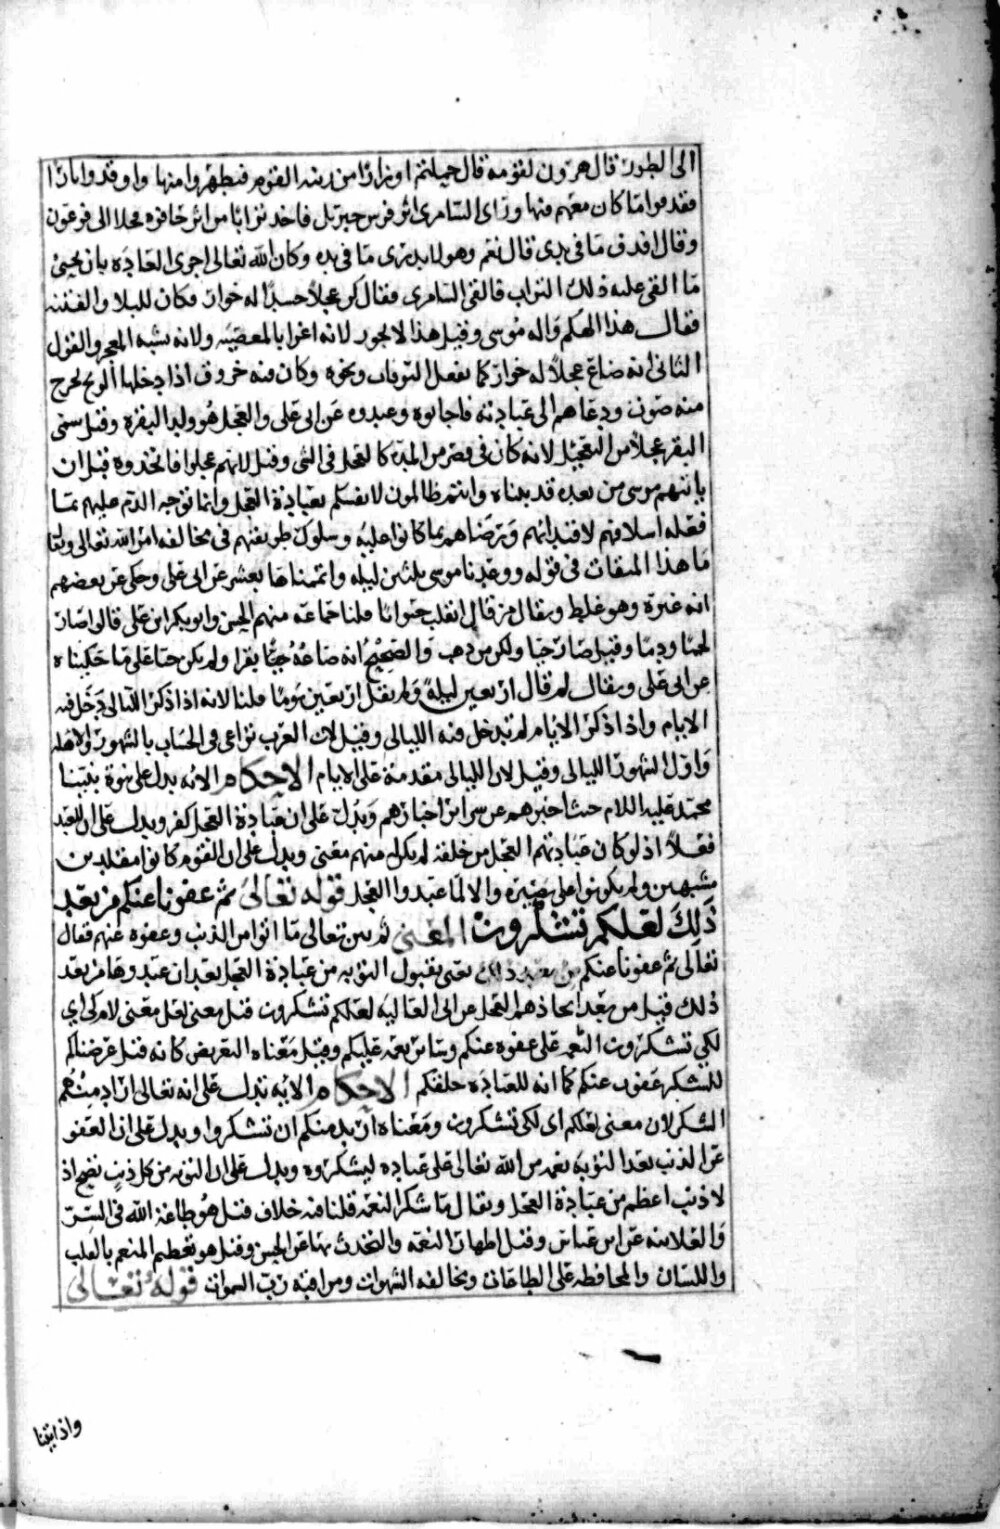 الى الطور قال هرون لقومه قد حملتم اوزارا من زينة القوم فتطهروا منها واوقدوا نارا
فقدموا ما كان معهم منها وراى السامرى اثر فرس جبريل فاخذ ترابا من اثر حافره
وقال اقذف ما فى يدى قال نعم وهو لا يدرى ما فى يده وكان الله تعالى اجرى العادة بان يحيى
ما القى عليه ذلك التراب فالقى السامرى فقال كن عجلا جسدا له خوار فكان للبلا والفتنة
فقال هذا الهكم واله موسى وقيل هذا لا يجوز لانه اغرا بالمعصية ولانه شبه المعجز والقول
الثانى انه صاغ عجلا له خوار كما يفعل ونحوه وكان فيه خروق اذا دخلها الريح خرج
منه صوت ودعاهم الى عبادته فاجابوه وعبدوه عن ابى على والعجل هو ولد البقرة وقيل سمى
البقر عجلا من التعجيل لانه كان فى قصر من المدة كالعجل فى الشى وقيل لانهم عجلوا فاتخذوه قبل ان
ياتيهم موسى من بعده قد بيناه وانتم ظالمون لانفسكم بعبادة العجل وانما توجه الذم عليهم بما
فعله اسلافهم لاقتدائهم ورضاهم بما كانوا عليه وسلوك طريقتهم فى مخالفه امر الله تعالى
ما هذا الميقات فى قوله وواعدنا موسى ثلثين ليله واتممناها بعشر عن ابى على وحكى عن بعضهم
انه غيره وهو غلط ويقال من قال انقلب حيوانا قلنا جماعة منهم الحسن وابو بكر قالوا صار
لحما ودما وقيل صار حيا ولكن من ذهب والصحيح انه صاغه بقرا ولم يكن حيا على ما حكيناه
عن ابى على ويقال لم قال اربعين ليلة ولم يقل اربعين يوما قلنا لانه اذا ذكر الليالى دخل فيه
الايام واذا ذكر الايام لم تدخل فيه الليالى وقيل لان العرب تراعى فى الحساب بالشهور والاهله
واول الشهور الليالى وقيل لان الليالى مقدمة على الايام الاحكام الايه يدل على نبوة نبينا
محمد عليه السلام حيث اخبرهم عن سراير اخبارهم ويدل على ان عبادة العجل كفر ويدل على ان للعبد
فعلا اذ لو كان عبادتهم العجل من خلقه لم يكن منهم معنى ويدل على ان القوم كانوا مقلدين
مشبهين ولم يكونوا على بصيرة والا لما عبدوا العجل قوله تعالى ثم عفونا عنكم من بعد
ذلك لعلكم تشكرون المعنى ثم بين تعالى ما اتوا من الذنب وعفوه عنهم فقال
تعالى ثم عفونا عنكم من بعد ذلك يعنى بقبول التوبه من عبادة العجل بعد ان عبدوها من بعد
ذلك قيل من بعد اتخاذهم العجل عن ابى العاليه لعلكم تشكرون قيل معنى لعل معنى لام كى اى
لكى تشكرون النعم على عفوه عنكم وسائر نعمه عليكم وقيل معناه التعريض كانه قيل عرضناكم
للشكر عفوت عنكم كما انه للعبادة خلقكم الاحكام الايه تدل على انه تعالى اراد منهم
الشكر لان معنى لعلكم اى لكى تشكرون ومعناه اريد منكم ان تشكروا ويدل على ان العفو
عن الذنب بعد التوبه نعمه من الله تعالى على عباده ليشكروه ويدل على ان التوبه من كل ذنب تصح اذ
لا ذنب اعظم من عبادة العجل ويقال ما شكر النعمه قلنا فيه خلاف قيل هو طاعة الله فى السر
والعلانيه عن ابن عباس وقيل اظهار النعمه والتحدث بها عن الحسن وقيل هو تعظيم المنعم بالقلب
واللسان والمحافظه على الطاعات ومخالفه الشهوات ومراقبة رب السموات قوله تعالى
واذ اتينا